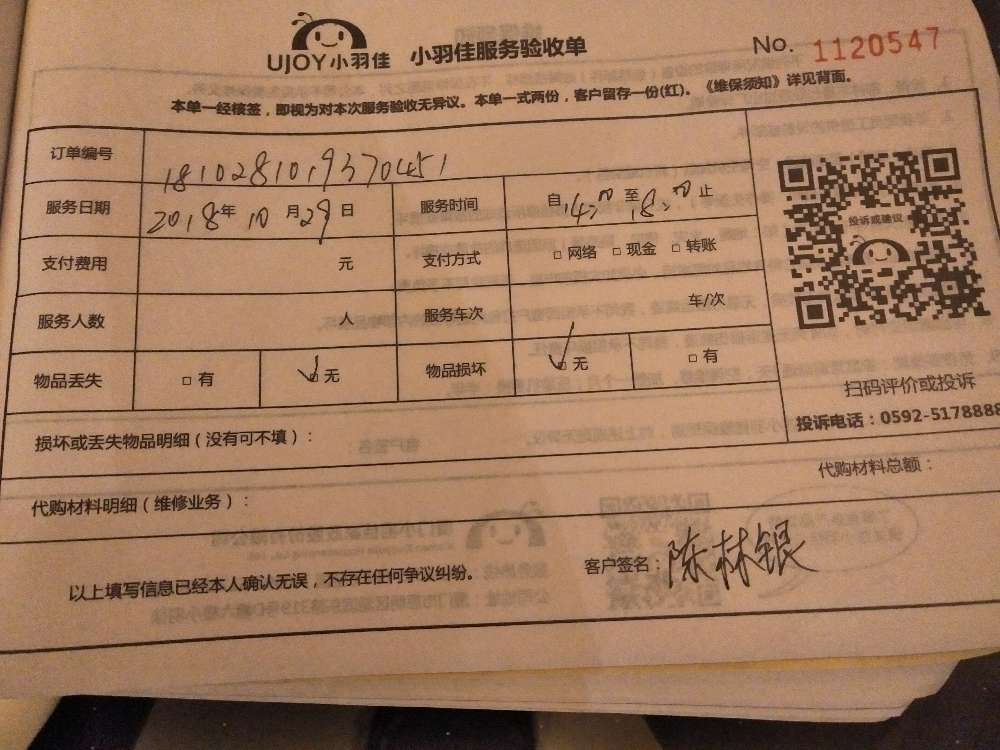 UJOY小羽佳 小羽佳服务验收单 No. 1120547
本单一经核签，即视为对本次服务验收无异议。本单一式两份，客户留存一份(红)。《维保须知》详见背面。
订单编号 1810281019370451
服务日期 2018年10月29日 服务时间 自14:00至18:00止
支付费用 元 支付方式 □ 网络 □ 现金 □ 转账
服务人数 人 服务车次 车/次
物品丢失 □ 有 ☑ 无 物品损坏 ☑ 无 □ 有
投诉或建议
扫码评价或投诉
投诉电话：0592-5178888
损坏或丢失物品明细（没有可不填）：
代购材料明细（维修业务）： 代购材料总额：
以上填写信息已经本人确认无误，不存在任何争议纠纷。 客户签名：陈林银